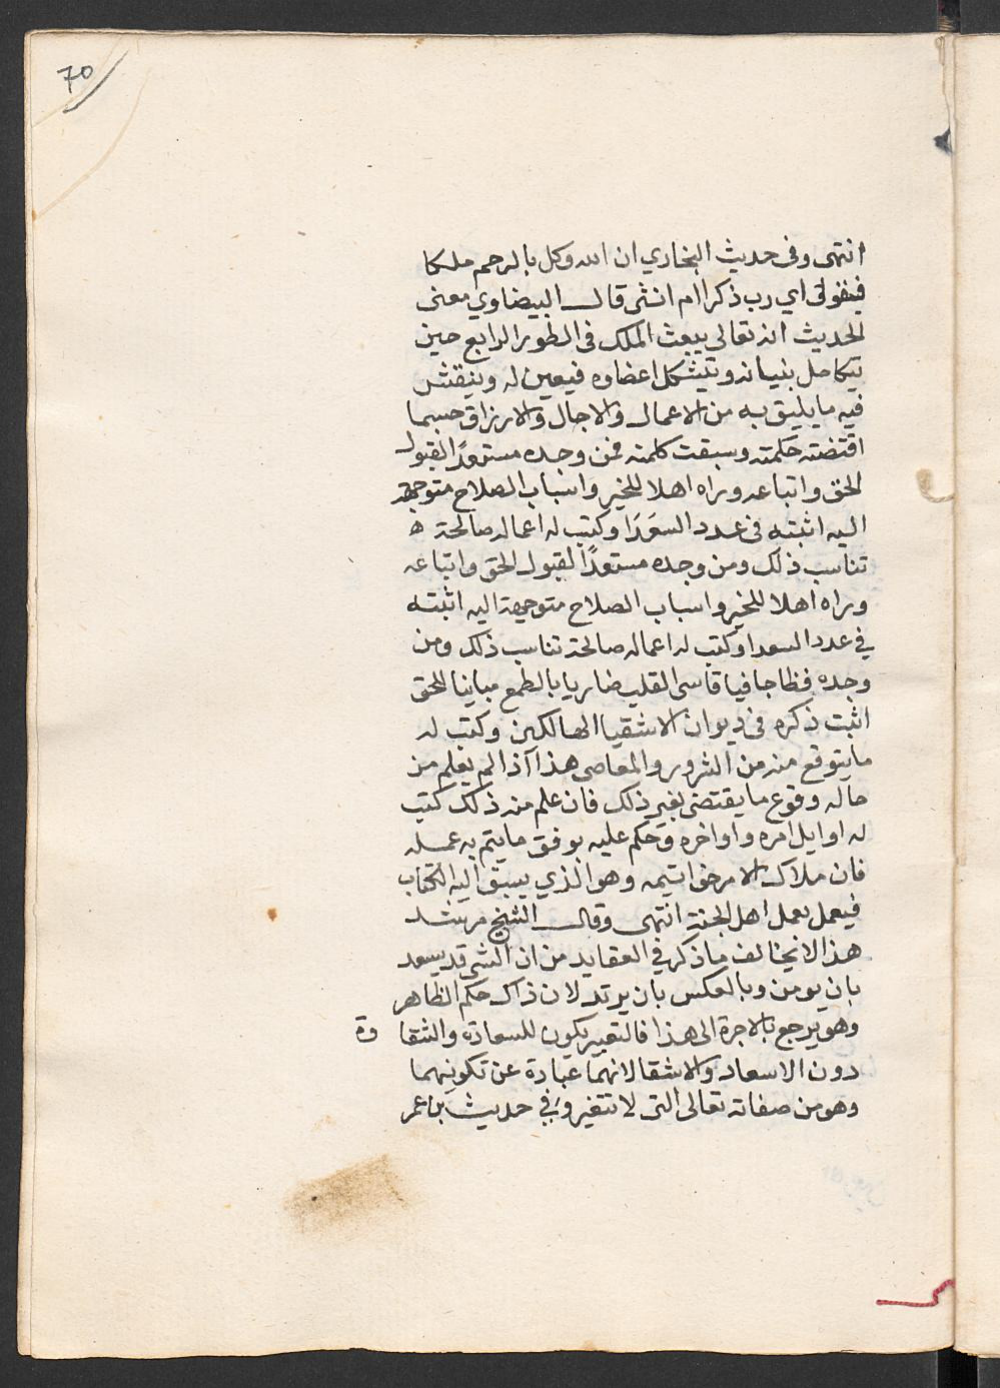 70
انتهى وفى حديث البخاري ان الله وكل بالرحم ملكا
فيقول اي رب ذكرا ام انثى قال البيضاوي معنى
الحديث انه تعالى يبعث الملك فى الطور الرابع حين
يتكامل بنيانه ويتشكل اعضاوه فيعين له وينقش
فيه ما يليق به من الاعمال والاجال والارزاق حسبما
اقتضته حكمته وسبقت كلمته فمن وجده مستعدًا لقبول
الحق واتباعه وراه اهلا للخير واسباب الصلاح متوجهة
اليه اثبته فى عدد السعدا وكتب له اعماله صالحة ه
تناسب ذلك ومن وجده مستعدًا لقبول الحق واتباعه
وراه اهلا للخير واسباب الصلاح متوجهة اليه اثبته
في عدد السعدا وكتب له اعماله صالحة تناسب ذلك ومن
وجده فظا جافيا قاسى القلب ضاريا بالطمع مباينا للحق
اثبت ذكره فى ديوان الاشقيا الهالكين وكتب له
ما يتوقع منه من الشرور والمعاصى هذا اذا لم يعلم من
حاله وقوع ما يقتضى بغير ذلك فان علم منه ذلك كتب
له اوايل امره واواخره وحكم عليه بوفق ما يتم به عمله
فان ملاك الامر خواتيمه وهو الذي يسبق اليه الكتاب
فيعمل بعمل اهل الجنة انتهى وقال الشيخ مرشد
هذا لا يخالف ما ذكر في العقايد من ان الشقى قد يسعد
بان يومن وبالعكس بان يرتد لان ذاك حكم الظاهر
وهو يرجع بالاجرة الى هذا فالتغيير يكون للسعادة والشقا وة
دون الاسعاد والاشقا لانهما عبادة عن تكوينهما
وهو من صفاته تعالى التى لا تتغير وفي حديث بن عمر